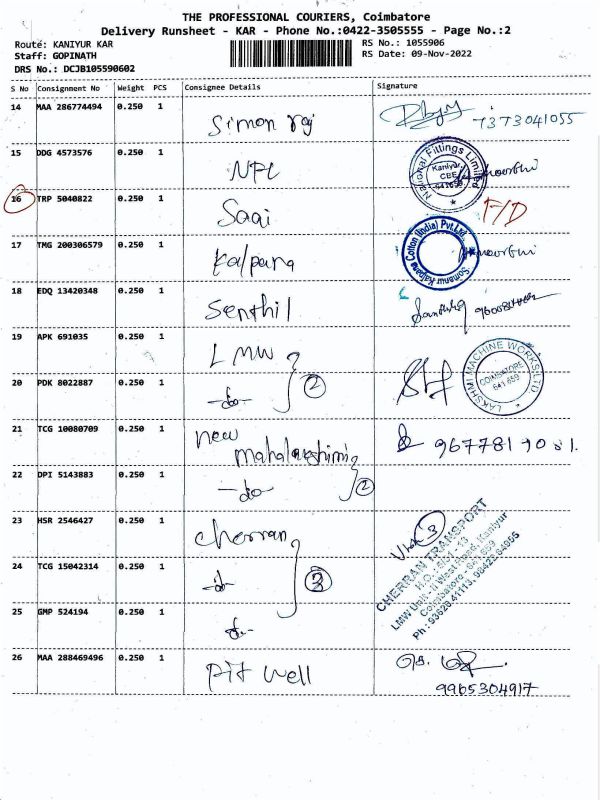 THE PROFESSIONAL COURIERS, Coimbatore
Delivery Runsheet - KAR - Phone No.:0422-3505555 - Page No.:2
Route: KANIYUR KAR
RS No.: 1055906
Staff: GOPINATH
RS Date: 09-Nov-2022
DRS No.: DCJB105590602
S No Consignment No Weight PCS Consignee Details Signature
14 MAA 286774494 0.250 1 Simon raj 7373041055
15 DDG 4573576 0.250 1 NFL
National Fittings Limited
Kaniyur,
CBE
641 659
16 TRP 5040822 0.250 1 Saai F/D
17 TMG 200306579 0.250 1 Kalpana
Somanur Kalpana Cotton (India) Pvt.Ltd.
18 EDQ 13420348 0.250 1 Senthil
19 APK 691035 0.250 1 LMW
LAKSHMI MACHINE WORKS LTD.
COIMBATORE
641 659
20 PDK 8022887 0.250 1 -do- 2
21 TCG 10080709 0.250 1 new mahalakshimi
22 DPI 5143883 0.250 1 -do- 2
23 HSR 2546427 0.250 1 cherran 3
CHERRAN TRANSPORT
LMW Unit - II West Road, Kaniyur
Coimbatore - 641 659
24 TCG 15042314 0.250 1 -do- 3
25 GMP 524194 0.250 1 -do-
26 MAA 288469496 0.250 1 Pit well
9965304917